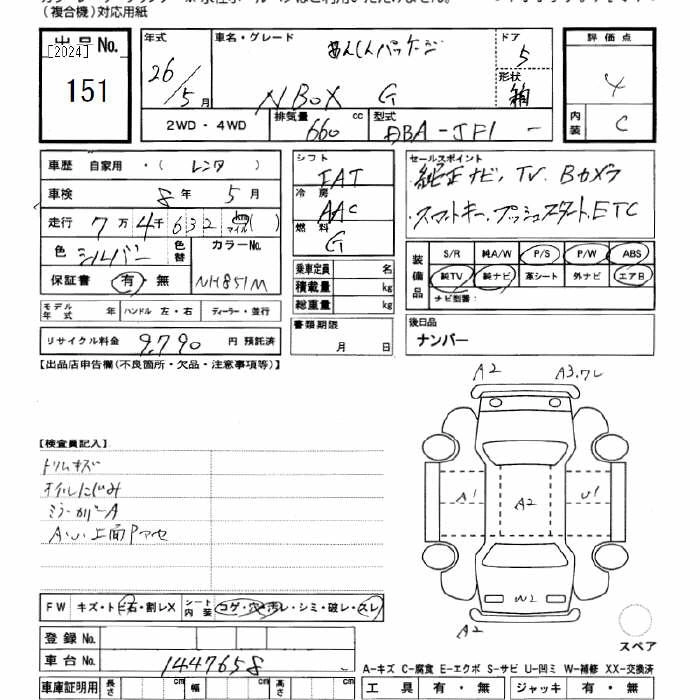 (複合機)対応用紙
出品No.
[2024]
151
年式
26/5月
車名・グレード
あんしんパッケージ
N BOX G
ドア
5
形状
箱
2WD・4WD
排気量
660 cc
型式
DBA-JF1 -
評価点
4
内装
C
車歴 自家用・( レンタ )
車検 8年 5月
走行 7万4千632 km マイル ( )
色 シルバー
色替
カラーNo.
NH851M
保証書 有・無
モデル年式 年 ハンドル 左・右 ディーラー・並行
リサイクル料金 9,790 円 預託済
シフト
IAT
冷房
AAC
燃料
G
乗車定員 名
積載量 kg
総重量 kg
書類期限
月 日
セールスポイント
純正ナビ、TV、Bカメラ
スマートキー、プッシュスタート、ETC
装備品
S/R 純A/W P/S P/W ABS
純TV 純ナビ 革シート 外ナビ エアB
ナビ型番:
後日品
ナンバー
【出品店申告欄(不良箇所・欠品・注意事項等)】
【検査員記入】
トリムキズ
オイルにじみ
ミラーカバーA
A2 A3,ワレ
A1 A2 U1
W2
A2
スペア
FW キズ・トビ石・割レX シート内装 コゲ・穴・汚レ・シミ・破レ・スレ
登録No.
車台No. 1447658
車庫証明用 長さ cm 幅 cm 高さ cm
A-キズ C-腐食 E-エクボ S-サビ U-凹ミ W-補修 XX-交換済
工具 有・無 ジャッキ 有・無